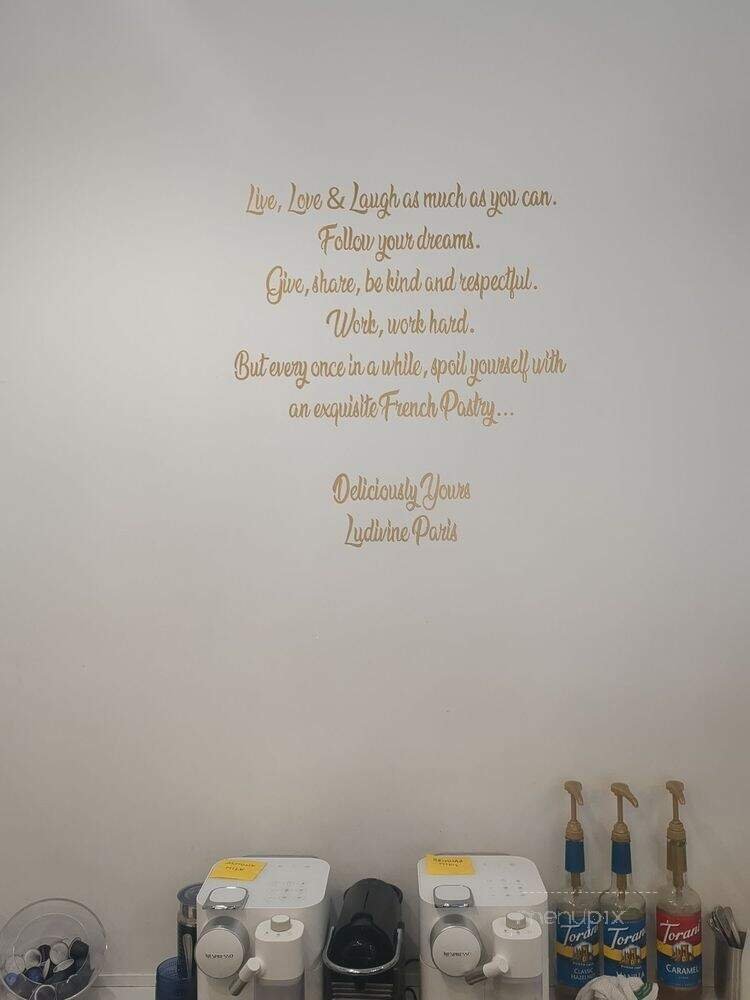 Live, Love & Laugh as much as you can.
Follow your dreams.
Give, share, be kind and respectful.
Work, work hard.
But every once in a while, spoil yourself with
an exquisite French Pastry...
Deliciously Yours
Ludivine Paris
NESPRESSO
NESPRESSO
menupix
Torani
CLASSIC
HAZELNUT
Torani
VANILLA
Torani
CARAMEL